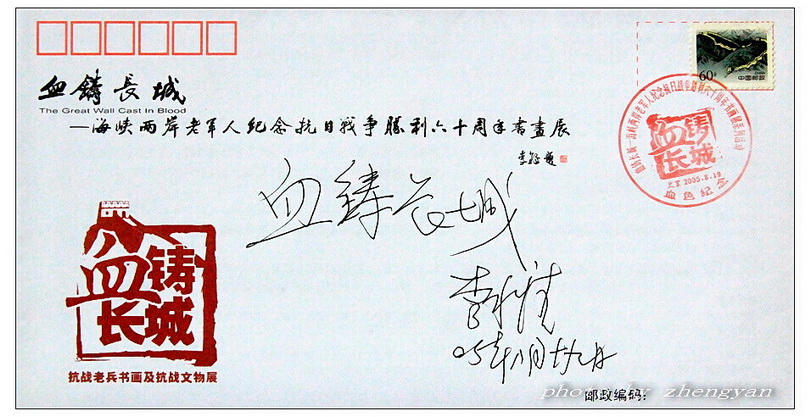 血鑄長城
The Great Wall Cast In Blood
—海峡两岸老军人纪念抗日战争勝利六十周年書畫展
60分
中国邮政
血铸长城
北京 2005.8.19
血色纪念
血铸长城
血铸长城
抗战老兵书画及抗战文物展
05年八月廿九日
邮政编码:
photo by zhengyan